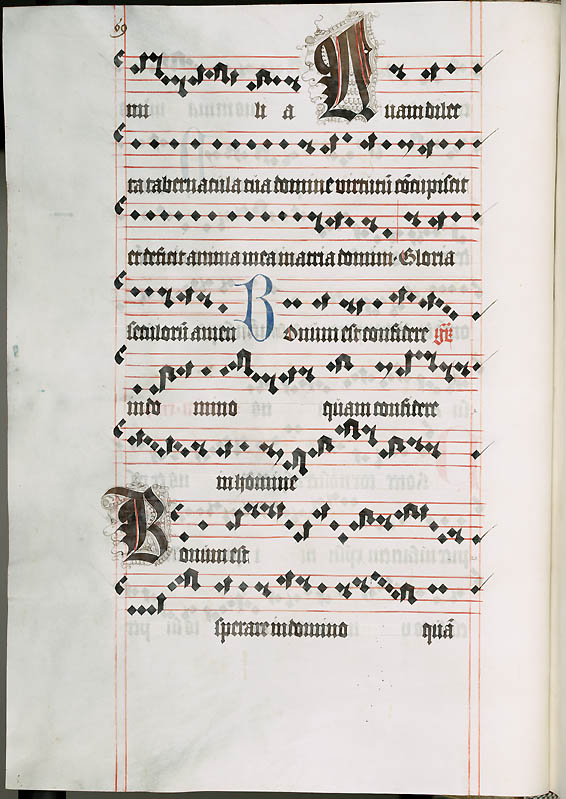 69
mi li a Quam dilec
ta tabernacula tua domine virtutũ cõcupiscit
et deficit anima mea in atria domini · Gloria
seculorũ amen Bonum est confidere gr̃
in do mino quam confidere
in homine
Bonum est
sperare in domino quã